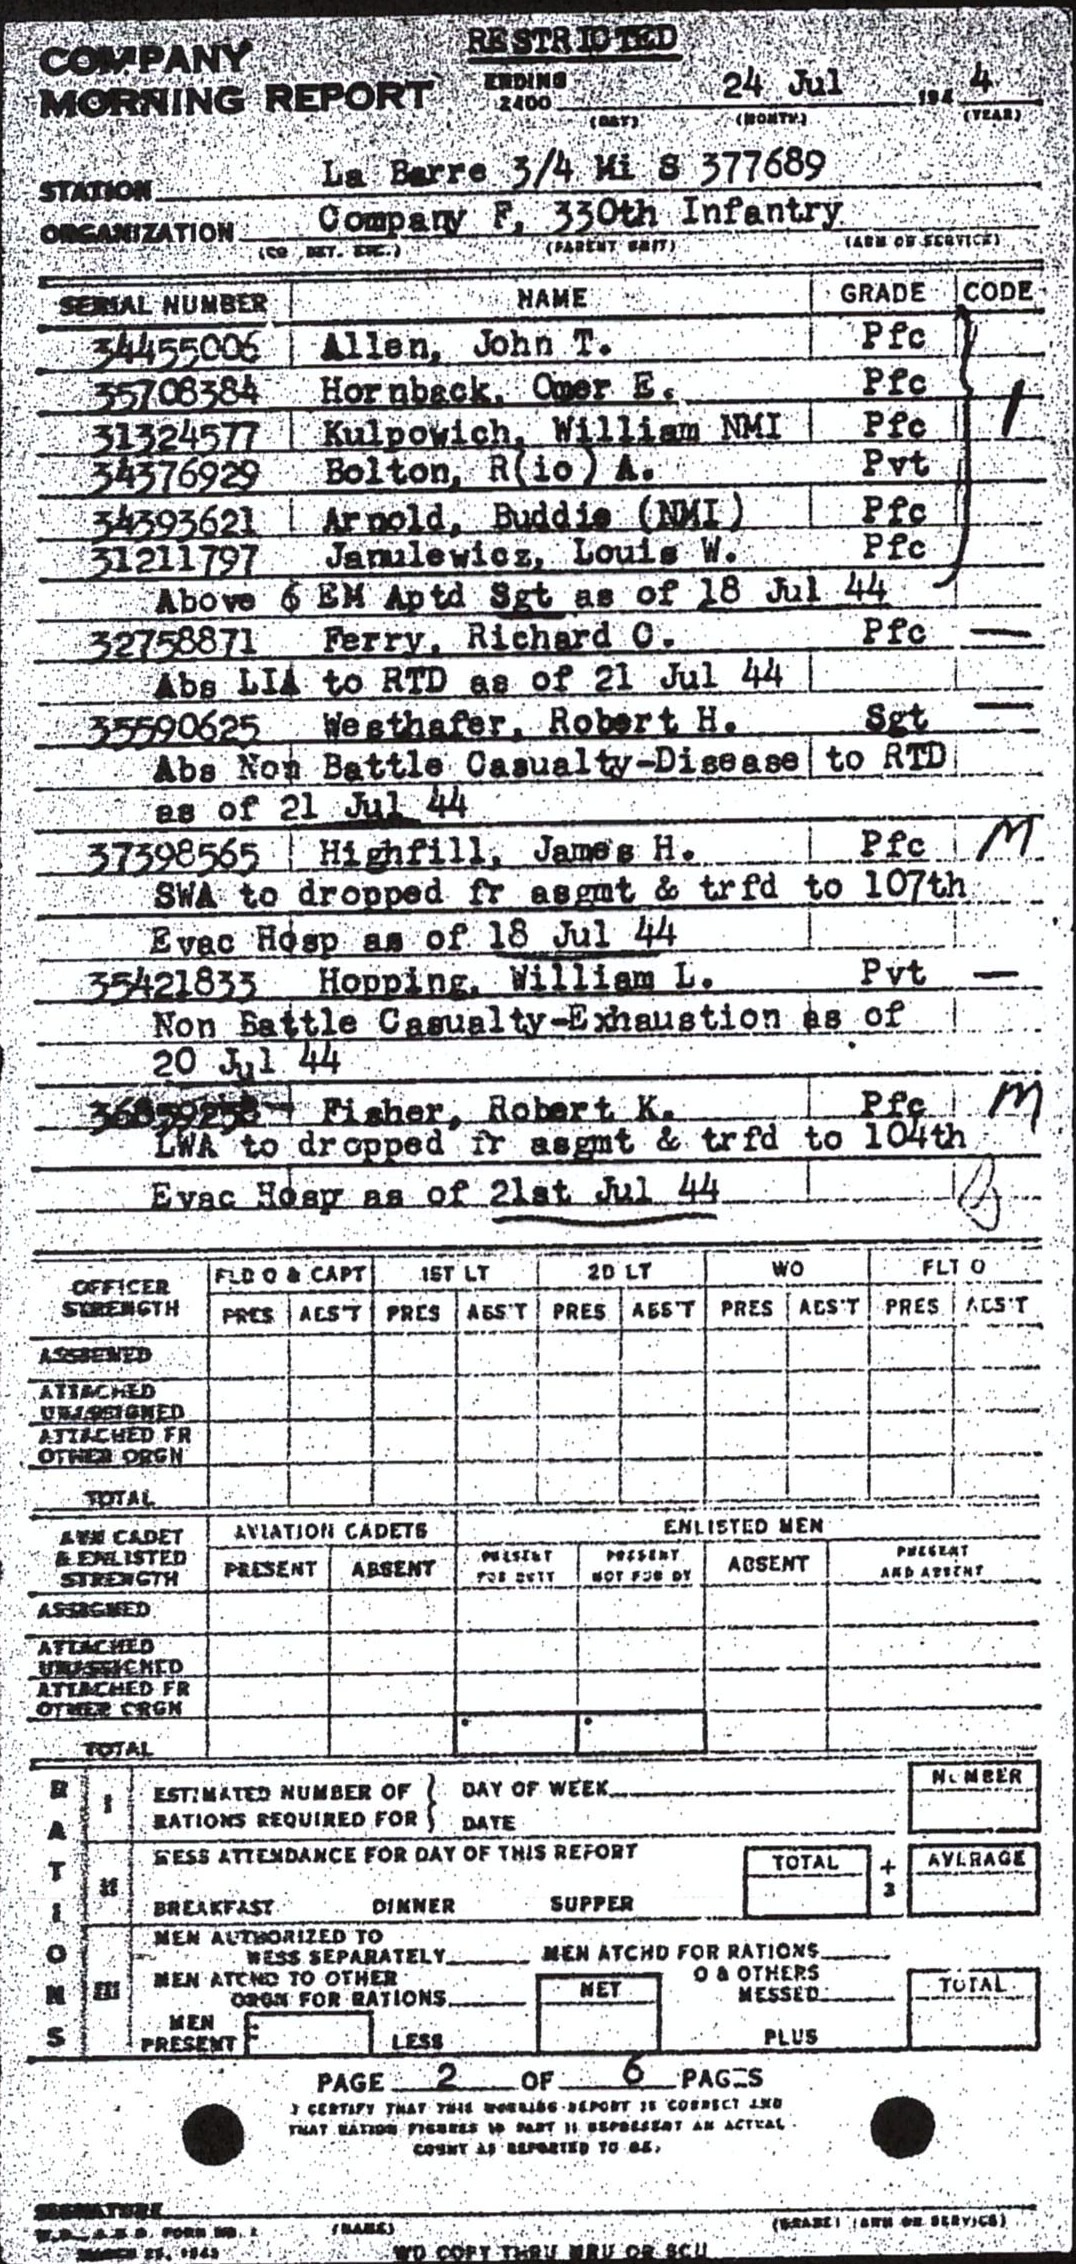 RESTRICTED
COMPANY
MORNING REPORT
ENDING
2400 24 Jul 194 4
(DAY) (MONTH) (YEAR)
STATION La Barre 3/4 Mi S 377689
ORGANIZATION Company F, 330th Infantry
(CO DET. ETC.) (PARENT UNIT) (ARM OR SERVICE)
SERIAL NUMBER NAME GRADE CODE
34455006 Allen, John T. Pfc
35708384 Hornback, Omer E. Pfc
31324577 Kulpowich, William NMI Pfc
34376929 Bolton, R(io) A. Pvt
34393621 Arnold, Buddie (NMI) Pfc
31211797 Janulewicz, Louis W. Pfc
Above 6 EM Aptd Sgt as of 18 Jul 44
32758871 Ferry, Richard O. Pfc —
Abs LIA to RTD as of 21 Jul 44
35590625 Westhafer, Robert H. Sgt —
Abs Non Battle Casualty-Disease to RTD
as of 21 Jul 44
37398565 Highfill, James H. Pfc M
SWA to dropped fr asgmt & trfd to 107th
Evac Hosp as of 18 Jul 44
35421833 Hopping, William L. Pvt —
Non Battle Casualty-Exhaustion as of
20 Jul 44
Fisher, Robert K. Pfc M
LWA to dropped fr asgmt & trfd to 104th
Evac Hosp as of 21st Jul 44
OFFICER STRENGTH FLD O & CAPT 1ST LT 2D LT WO FLT O
PRES ABS'T PRES ABS'T PRES ABS'T PRES ABS'T PRES ABS'T
ASSIGNED
ATTACHED
UNASSIGNED
ATTACHED FR
OTHER ORGN
TOTAL
AVN CADET
& ENLISTED
STRENGTH
AVIATION CADETS ENLISTED MEN
PRESENT ABSENT PRESENT FOR DUTY PRESENT NOT FOR DY ABSENT PRESENT AND ABSENT
ASSIGNED
ATTACHED
UNASSIGNED
ATTACHED FR
OTHER ORGN
TOTAL
RATIONS
I ESTIMATED NUMBER OF DAY OF WEEK NUMBER
RATIONS REQUIRED FOR DATE
II MESS ATTENDANCE FOR DAY OF THIS REPORT TOTAL + 3 AVERAGE
BREAKFAST DINNER SUPPER
III MEN AUTHORIZED TO
MESS SEPARATELY MEN ATCHD FOR RATIONS
MEN ATCHD TO OTHER O & OTHERS
ORGN FOR RATIONS NET MESSED TOTAL
MEN
PRESENT LESS PLUS
PAGE 2 OF 6 PAGES
I CERTIFY THAT THIS MORNING REPORT IS CORRECT AND
THAT RATION FIGURES IN PART II REPRESENT AN ACTUAL
COUNT AS REPORTED TO ME.
SIGNATURE
(NAME) (GRADE) (ARM OR SERVICE)
W.D., A.G.O. FORM NO. 1
MARCH 25, 1943
WD COPY THRU MRU OR SCU